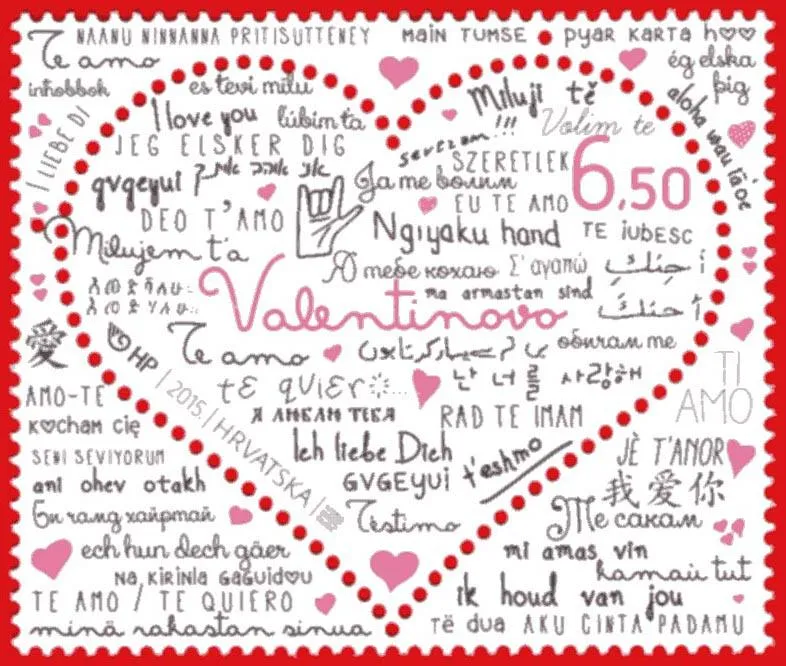 NAANU NINNANNA PRITISUTTENEY
MAIN TUMSE
pyar KARTA
Te amo
ég elska þig
inħobbok
es tevi mīlu
Miluji tě
aloha wau iā 'oe
I LIEBE DI
I love you
ľúbim ťa
Volim te
!!!
JEG ELSKER DIG
SZERETLEK
6,50
gvgeyui
Ја те волим
EU TE AMO
DEO T'AMO
Ngiyaku
TE iUBESC
Milujem ťa
Я тебе кохаю
Σ' αγαπώ
أحبك
ma armastan sind
Valentinovo
أحبك
愛
HP
Te amo
обичам те
| 2015. | HRVATSKA |
tE quiEr
난 너를 사랑해
TI AMO
AMO-TE
RAD TE IMAM
Kocham cię
Ich liebe Dich
JÈ T'ANOR
SENI SEVIYORUM
GVGEyUI
t'eshmo
ani ohev otakh
我爱你
Би чамд хайртай
Testimo
Те сакам
ech hun dech gäer
mi amas vin
NA KIRINLA GAGUIDOU
TE AMO / TE QUIERO
ik houd van jou
minä rakastan sinua
Të dua
AKU CINTA PADAMU